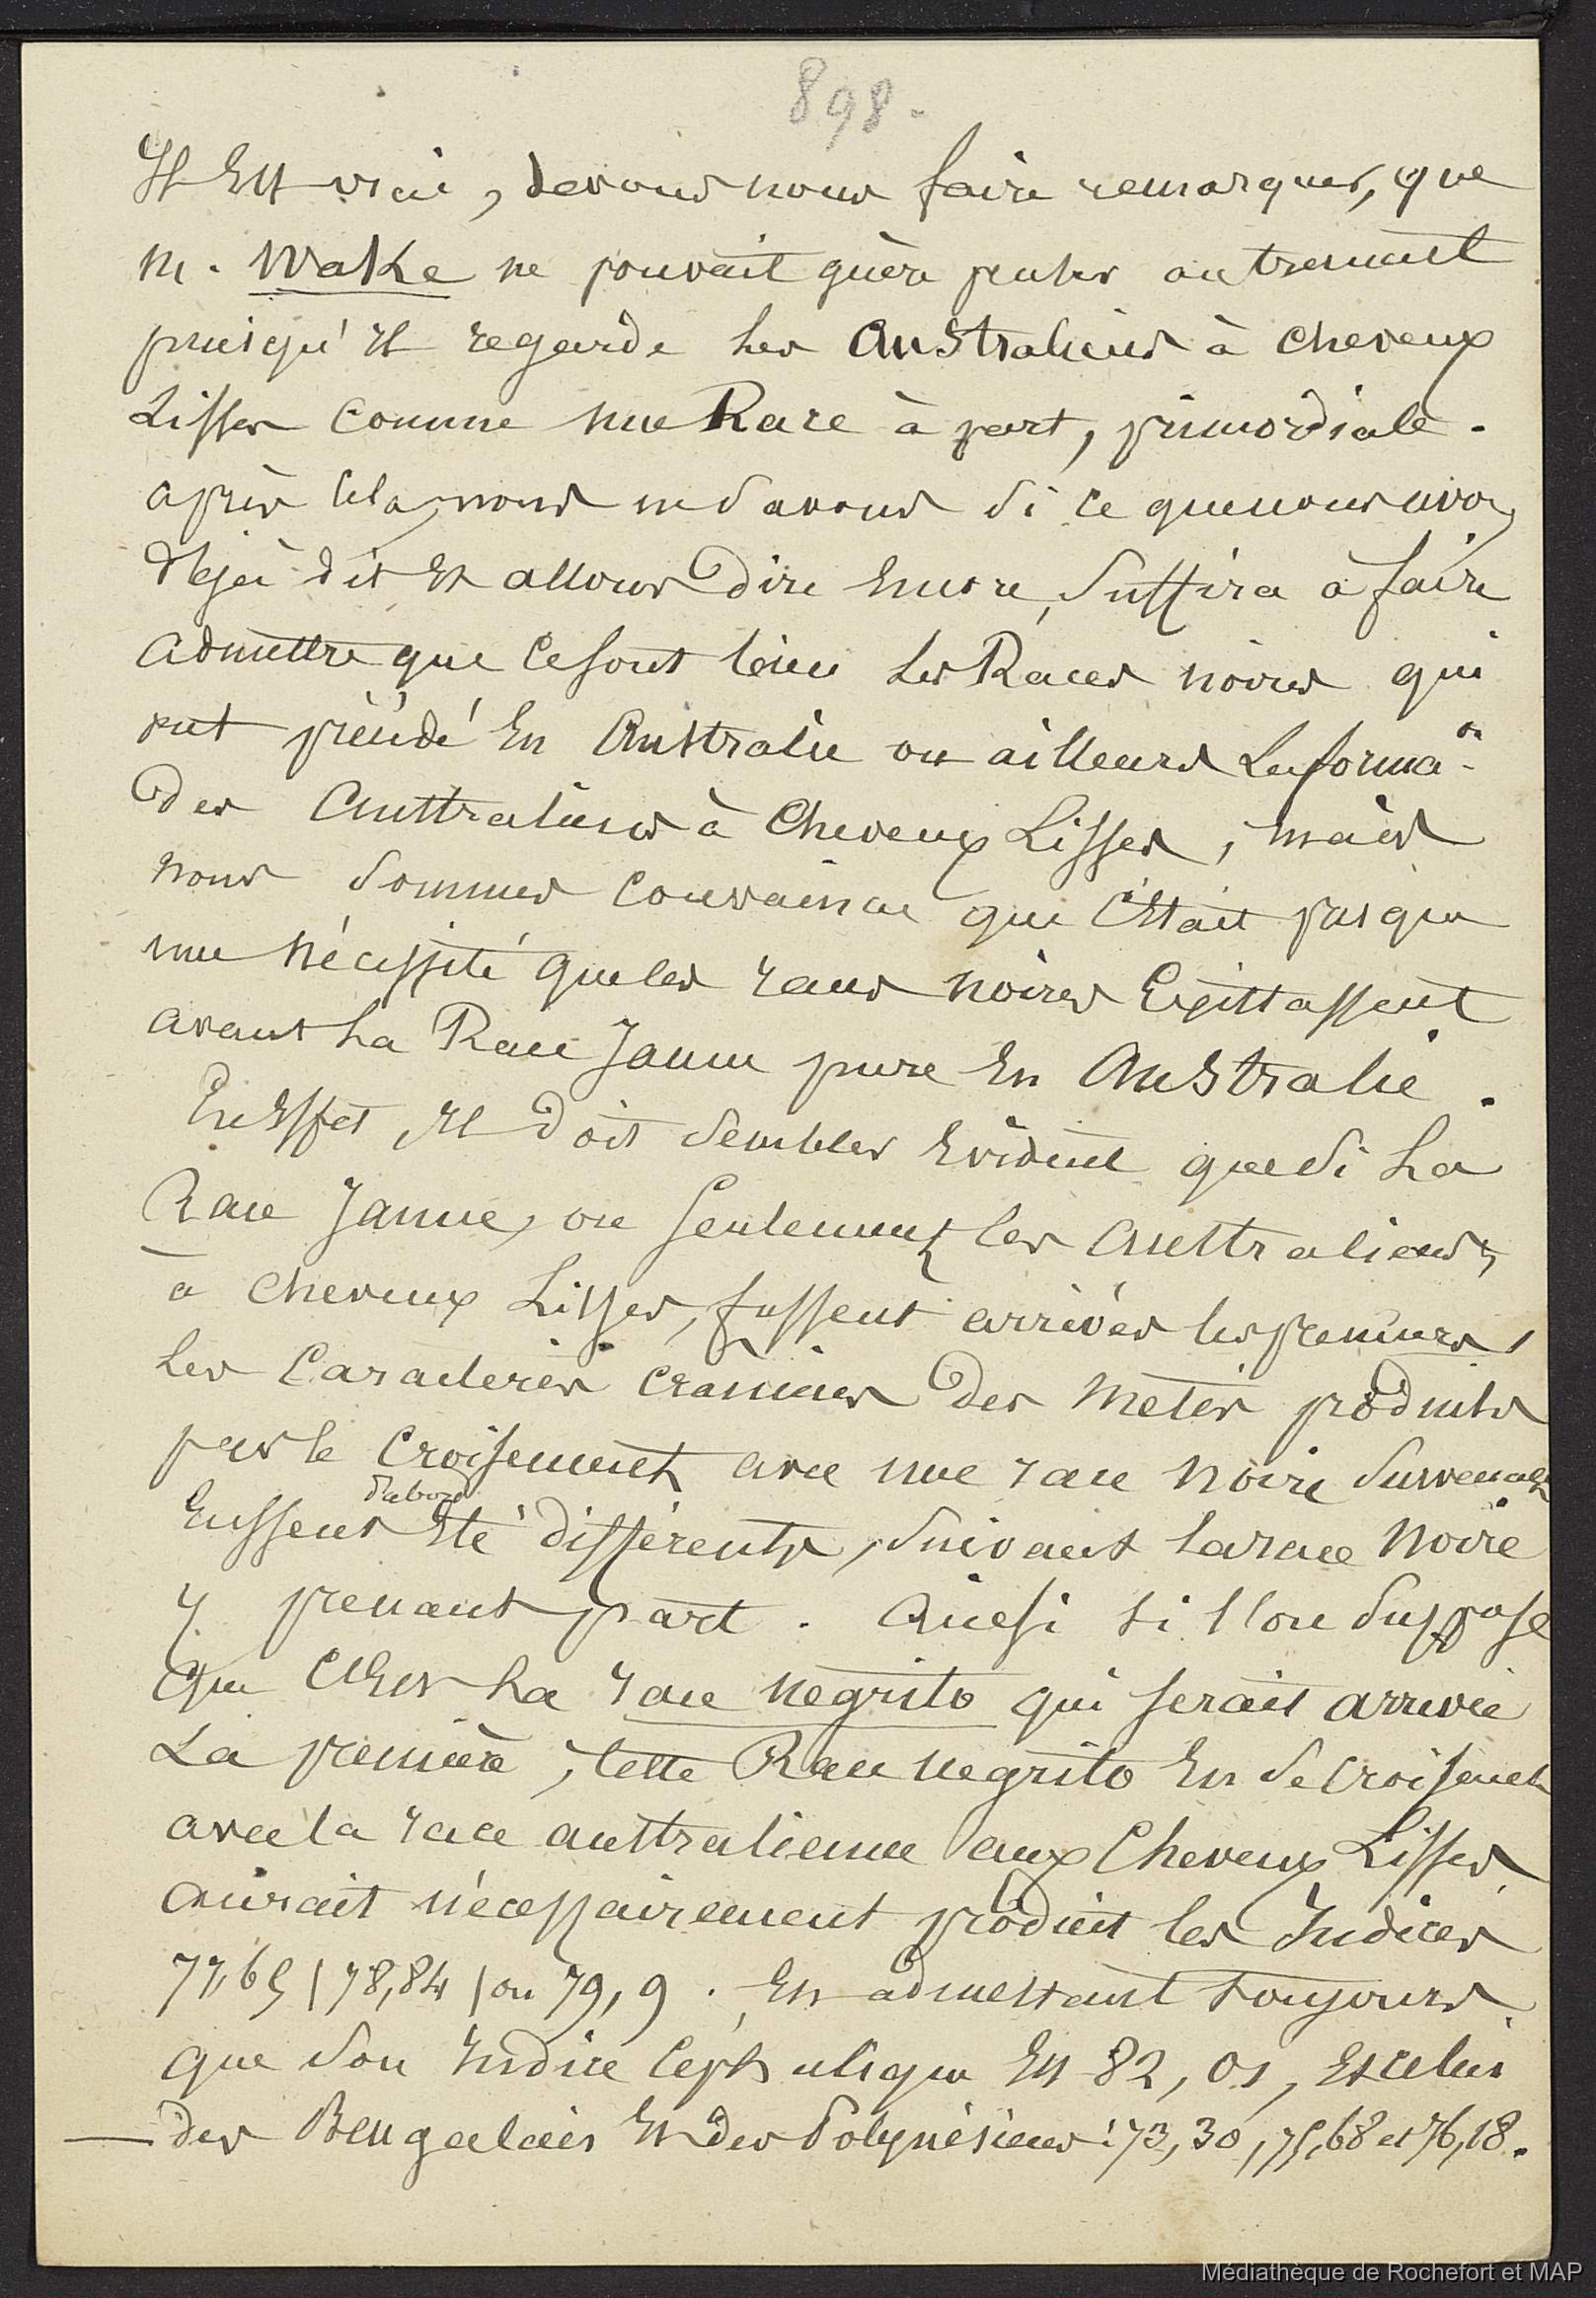 898.
Il Est vrai, devons nous faire remarquer, que
M. Wake ne pouvait guère penser autrement
puisqu'il regarde les Australiens à cheveux
Lisses comme une Race à part, primordiale.
après cela, nous ne savons si ce que nous avons
déjà dit et allons dire encore, suffira à faire
admettre que ce sont bien les Races noires qui
ont précédé En Australie ou ailleurs la formaon
des Australiens à Cheveux Lisses, mais
nous sommes convaincu que c'était presque
une nécessité que les races noires Existassent
avant La Race Jaune pure En Australie.
En Effet, il doit sembler Evident que si La
Race Jaune, ou seulement les Australiens
à cheveux Lisses, fussent arrivés les premiers,
les Caractères crâniens des métis produits
par le croisement avec une race noire survenant
d'abord
Eussent Eté différents, suivant la race noire
y prenant part. Ainsi si l'on suppose
que c'Est La race négrito qui serait arrivée
La première, cette Race négrito En se croisant
avec la race australienne aux Cheveux Lisses,
aurait nécessairement produit les Indices
77,65 / 78,84 / ou 79,9. En admettant toujours
que son Indice Céphalique Est 82,01, et celui
des Bengalais Et des Polynésiens: 73,30, 75,68 et 76,18.
Médiathèque de Rochefort et MAP